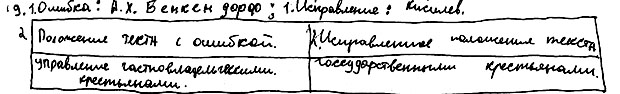 19. 1. Ошибка: А. Х. Бенкендорф; 1. Исправление: Киселев.
2. Положение текта с ошибкой. 2. Исправленное положение текста
управление частновладельческими крестьянами. государственными крестьянами.